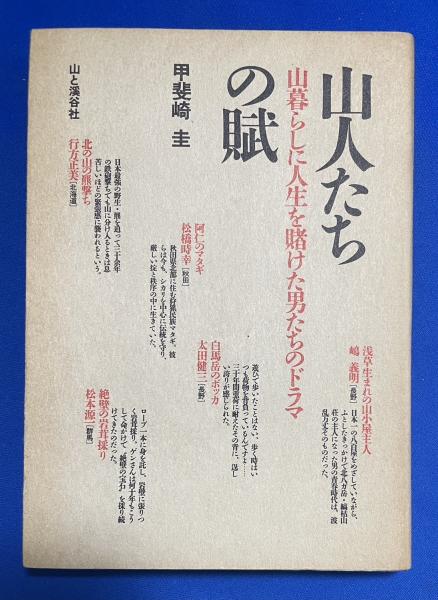 山人たち
の賦
山暮らしに人生を賭けた男たちのドラマ
甲斐崎 圭
山と溪谷社
浅草生まれの山小屋主人
嶋 義明[長野]
日本一の八百屋をめざしていながら、
ふとしたきっかけで北八ガ岳・縞枯山
荘の主人になった男の青春時代は、波
乱万丈そのものだった。
白馬岳のボッカ
太田健三[長野]
遊びで歩いたことはない、歩く時はい
つも荷物を背負っているんですよ……
三十年間強荷に耐えたその背に、逞し
い誇りが感じられた。
阿仁のマタギ
松橋時幸[秋田]
秋田県北部に住む狩猟民族マタギ。彼
らは今も、シカリを中心に伝統を守り、
厳しい掟と秩序の中に生きていた。
絶壁の岩茸採り
松本源一[群馬]
ロープ一本に身を託し、岩壁に張りつ
く岩茸採り。ゲンさんは何十年もこう
して命がけで“絶壁の宝石”を採り続
けてきたのだった。
北の山の熊撃ち
行方正美[北海道]
日本最強の野生・熊を追って三十余年
の鉄砲撃ちでも山に分け入るときは息
苦しいほどの緊張感に襲われるという。